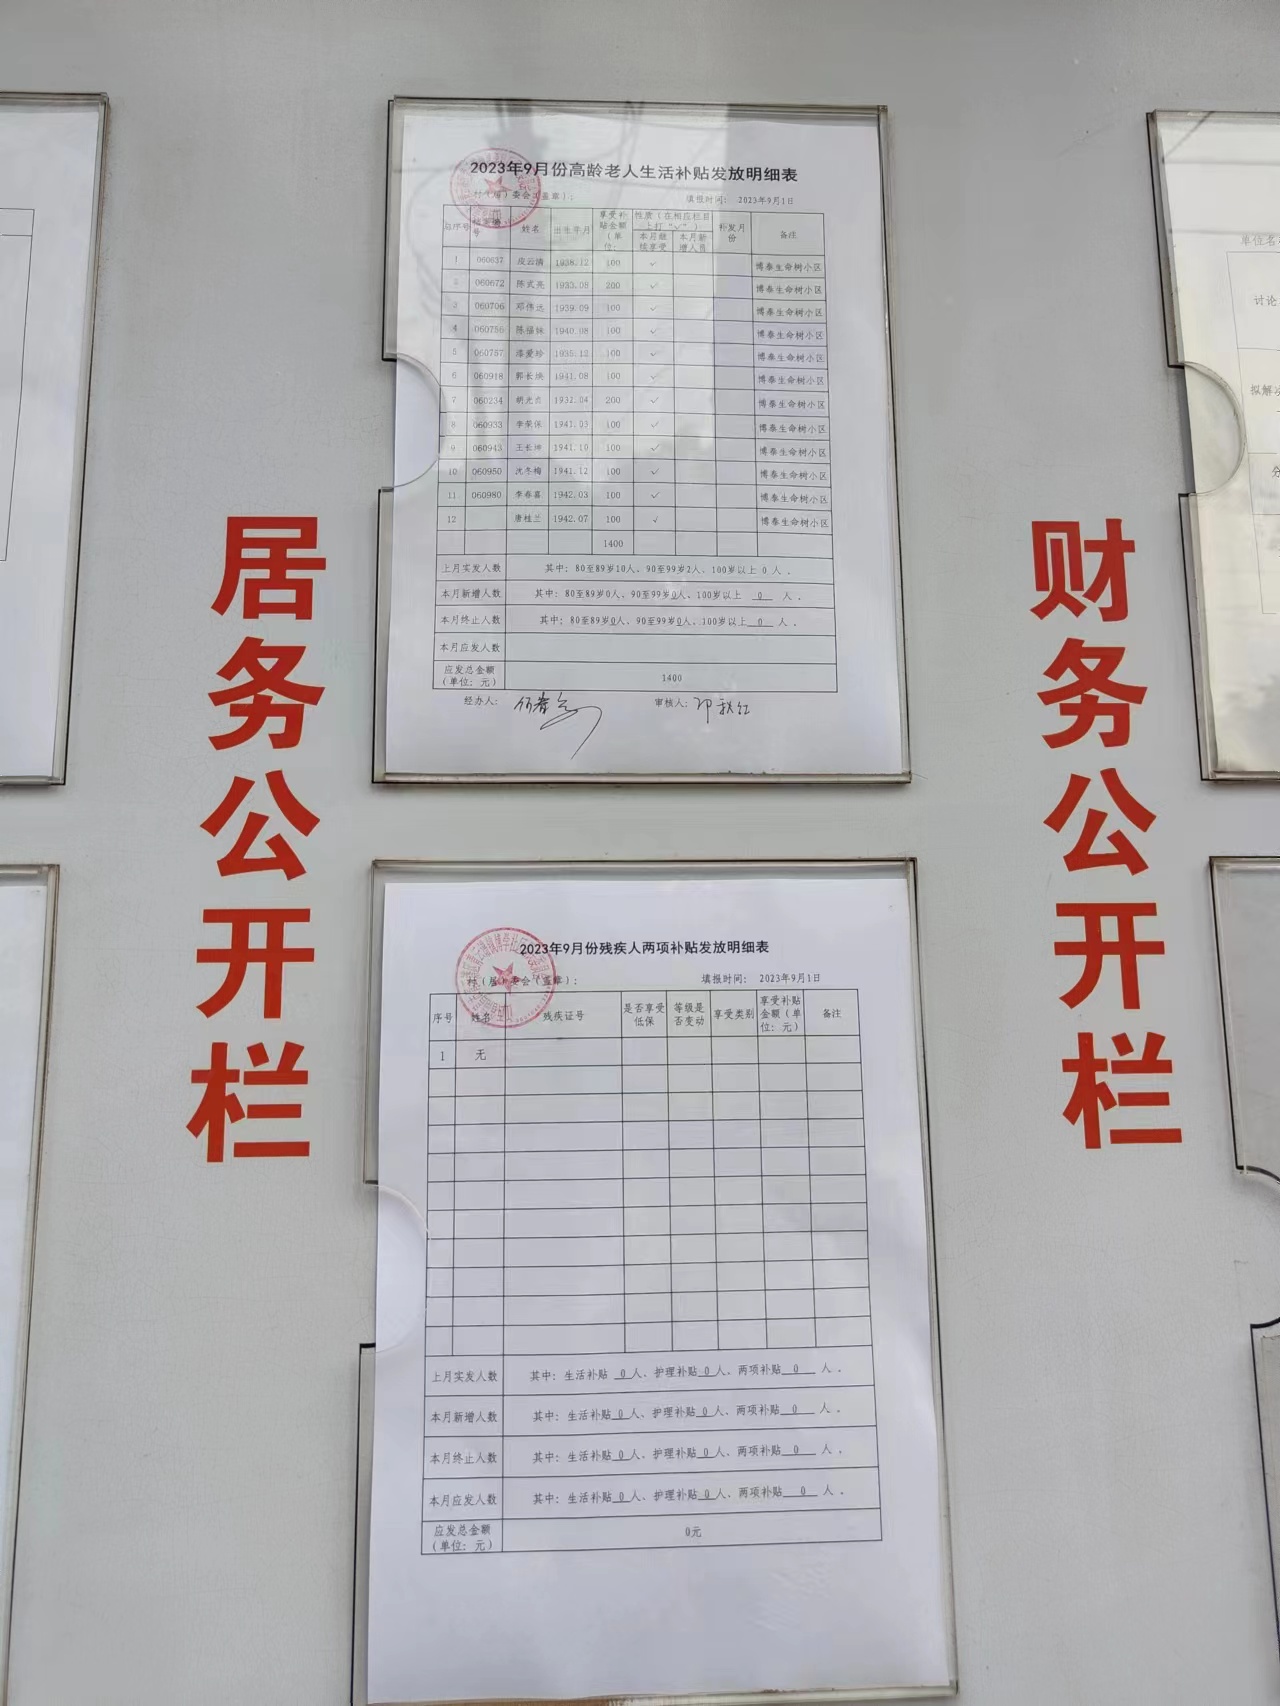 居务公开栏
财务公开栏
2023年9月份高龄老人生活补贴发放明细表
村（居）委会（盖章）： 填报时间： 2023年9月1日
姓名 出生年月 享受补贴金额（单位： 性质（在相应栏目上打“√”） 补发月份 备注
本月继续享受 本月新增人员
1 060637 皮云清 1938.12 100 √ 博泰生命树小区
2 060672 陈式亮 1933.08 200 √ 博泰生命树小区
3 060706 邓伟远 1939.09 100 √ 博泰生命树小区
4 060756 陈福妹 1940.08 100 √ 博泰生命树小区
5 060757 漆爱珍 1935.12 100 √ 博泰生命树小区
6 060918 郭长焕 1941.08 100 √ 博泰生命树小区
7 060234 1932.04 200 √ 博泰生命树小区
8 060933 李荣保 1941.03 100 √ 博泰生命树小区
9 060943 王长坤 1941.10 100 √ 博泰生命树小区
10 060950 沈冬梅 1941.12 100 √ 博泰生命树小区
11 060980 李春喜 1942.03 100 √ 博泰生命树小区
12 唐桂兰 1942.07 100 √ 博泰生命树小区
1400
上月实发人数 其中：80至89岁10人、90至99岁2人、100岁以上 0 人 。
本月新增人数 其中：80至89岁0人、90至99岁0人、100岁以上 0 人 。
本月终止人数 其中：80至89岁0人、90至99岁0人、100岁以上 0 人 。
本月应发人数
应发总金额（单位：元） 1400
经办人： 审核人：
2023年9月份残疾人两项补贴发放明细表
村（居）委会（盖章）： 填报时间： 2023年9月1日
序号 姓名 残疾证号 是否享受低保 等级是否变动 享受类别 享受补贴金额（单位：元） 备注
1 无
上月实发人数 其中：生活补贴 0 人、护理补贴 0 人、两项补贴 0 人 。
本月新增人数 其中：生活补贴 0 人、护理补贴 0 人、两项补贴 0 人 。
本月终止人数 其中：生活补贴 0 人、护理补贴 0 人、两项补贴 0 人 。
本月应发人数 其中：生活补贴 0 人、护理补贴 0 人、两项补贴 0 人 。
应发总金额（单位：元） 0元
单位名
讨论
拟解决